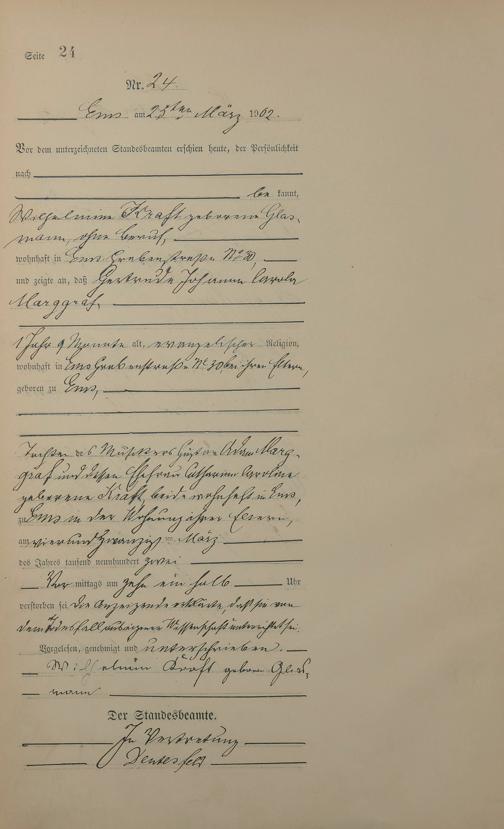 Seite 24
Nr. 24.
Ems am 25ten März 1902.
Vor dem unterzeichneten Standesbeamten erschien heute, der Persönlichkeit
nach
be kannt,
Wilhelmine Kraft geborene Glas-
mann, ohne Beruf,
wohnhaft in Ems Grabenstraße No 30,
und zeigte an, daß Gertrude Johanna Carola
Marggraf,
1 Jahr 9 Monate alt, evangelischer Religion,
wohnhaft in Ems Grabenstraße No 30, bei ihren Eltern,
geboren zu Ems,
Tochter des Musikers Gustav Adam Marg-
graf und dessen Ehefrau Catharina Caroline
geborene Kraft, beide wohnhaft in Ems,
zu Ems in der Wohnung ihrer Eltern,
am vierundzwanzigsten März
des Jahres tausend neunhundert zwei
Vor mittags um zehn ein halb Uhr
verstorben sei. Die Anzeigende erklärte, daß sie von
dem Todesfall aus eigener Wissenschaft unterrichtet sei.
Vorgelesen, genehmigt und unterschrieben.
Wilhelmin Kraft geborn Glas-
mann
Der Standesbeamte.
In Vertretung